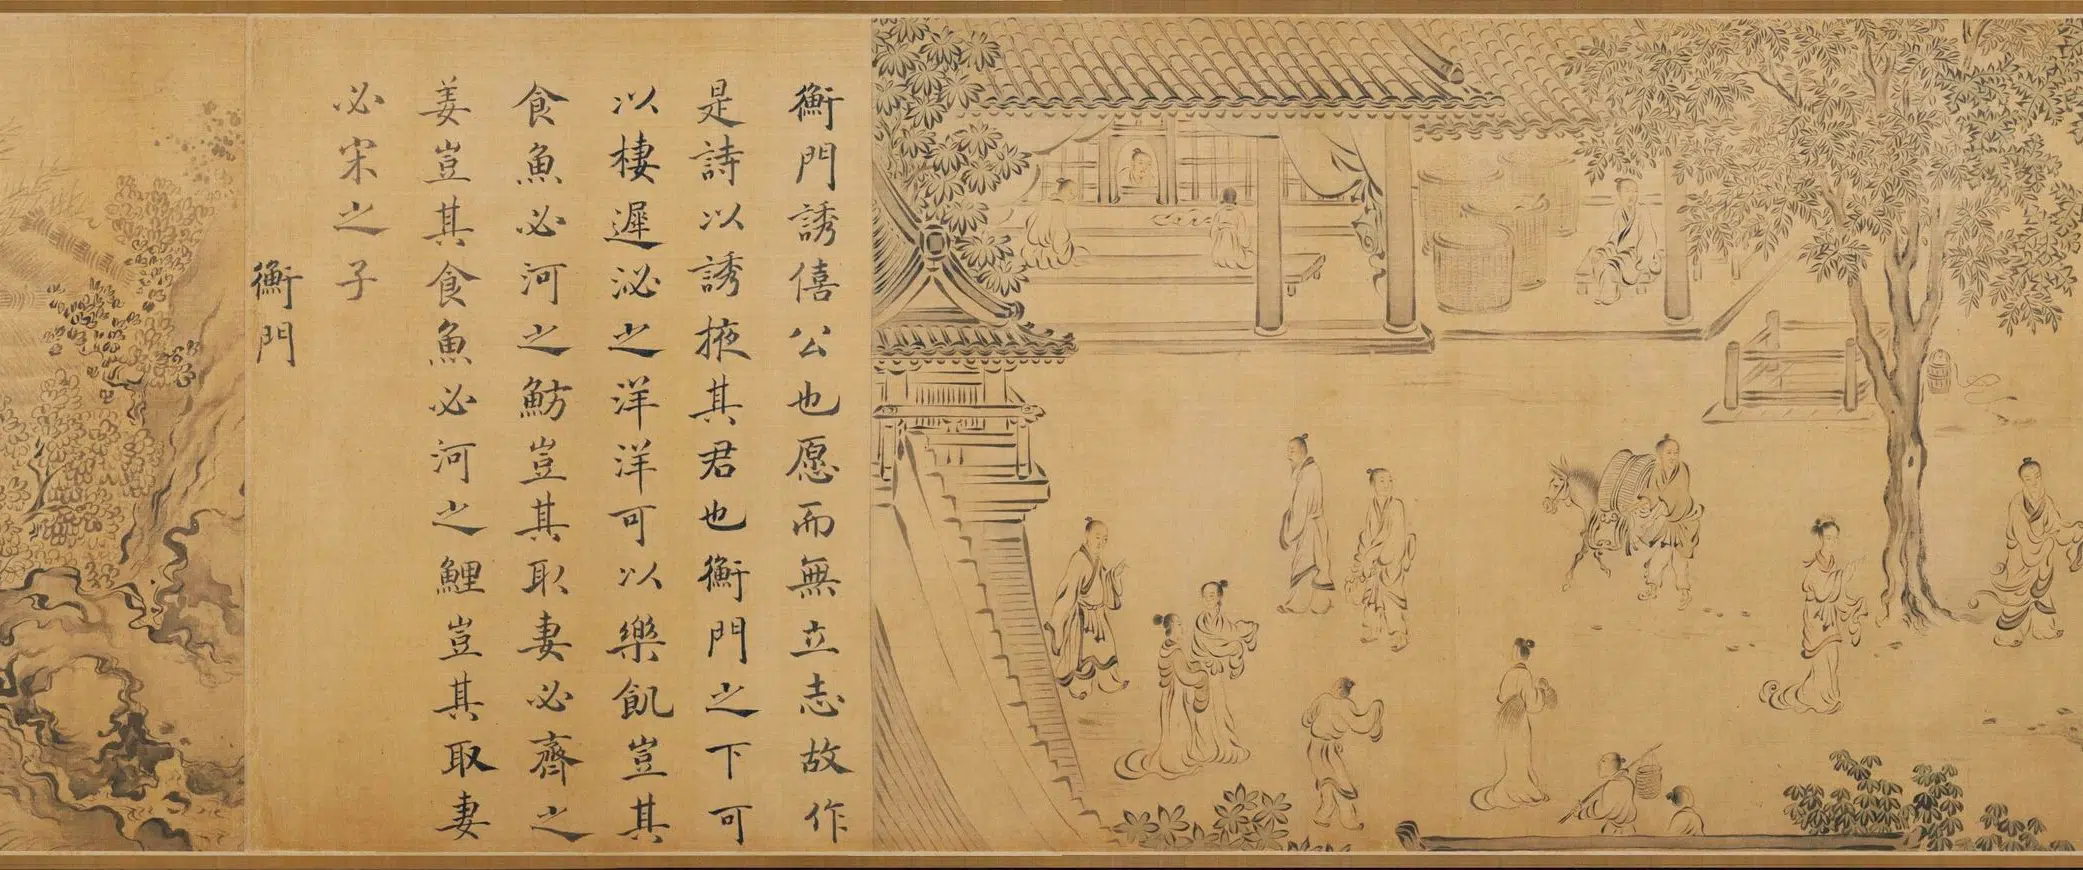 衡門誘僖公也愿而無立志故作
是詩以誘掖其君也衡門之下可
以棲遲泌之洋洋可以樂飢豈其
食魚必河之魴豈其取妻必齊之
姜豈其食魚必河之鯉豈其取妻
必宋之子
衡門